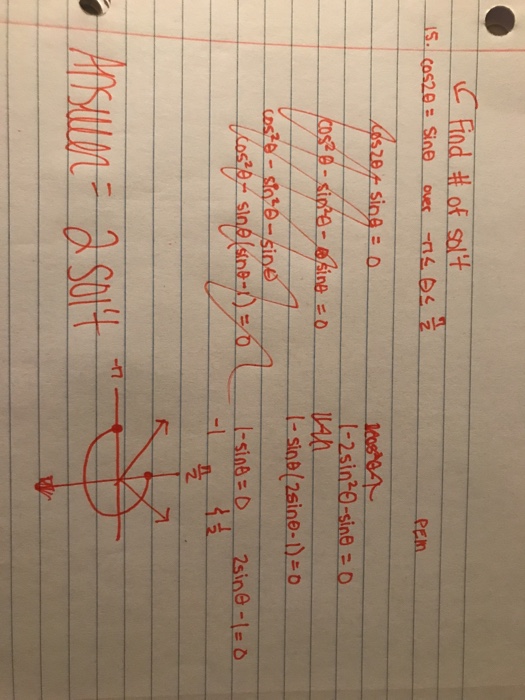 Find # of sol't
15. cos2θ = sinθ over -π ≤ θ ≤ π/2
PEM
cos2θ - sinθ = 0
cos²θ - sin²θ - sinθ = 0
cos²θ - sin²θ - sinθ
cos²θ - sinθ(sinθ-1) = 0
1-2sin²θ-sinθ = 0
1- sinθ(2sinθ-1) = 0
1-sinθ = 0 2sinθ-1=0
-1 & 1/2
π/2
-π
Answer = 2 sol't